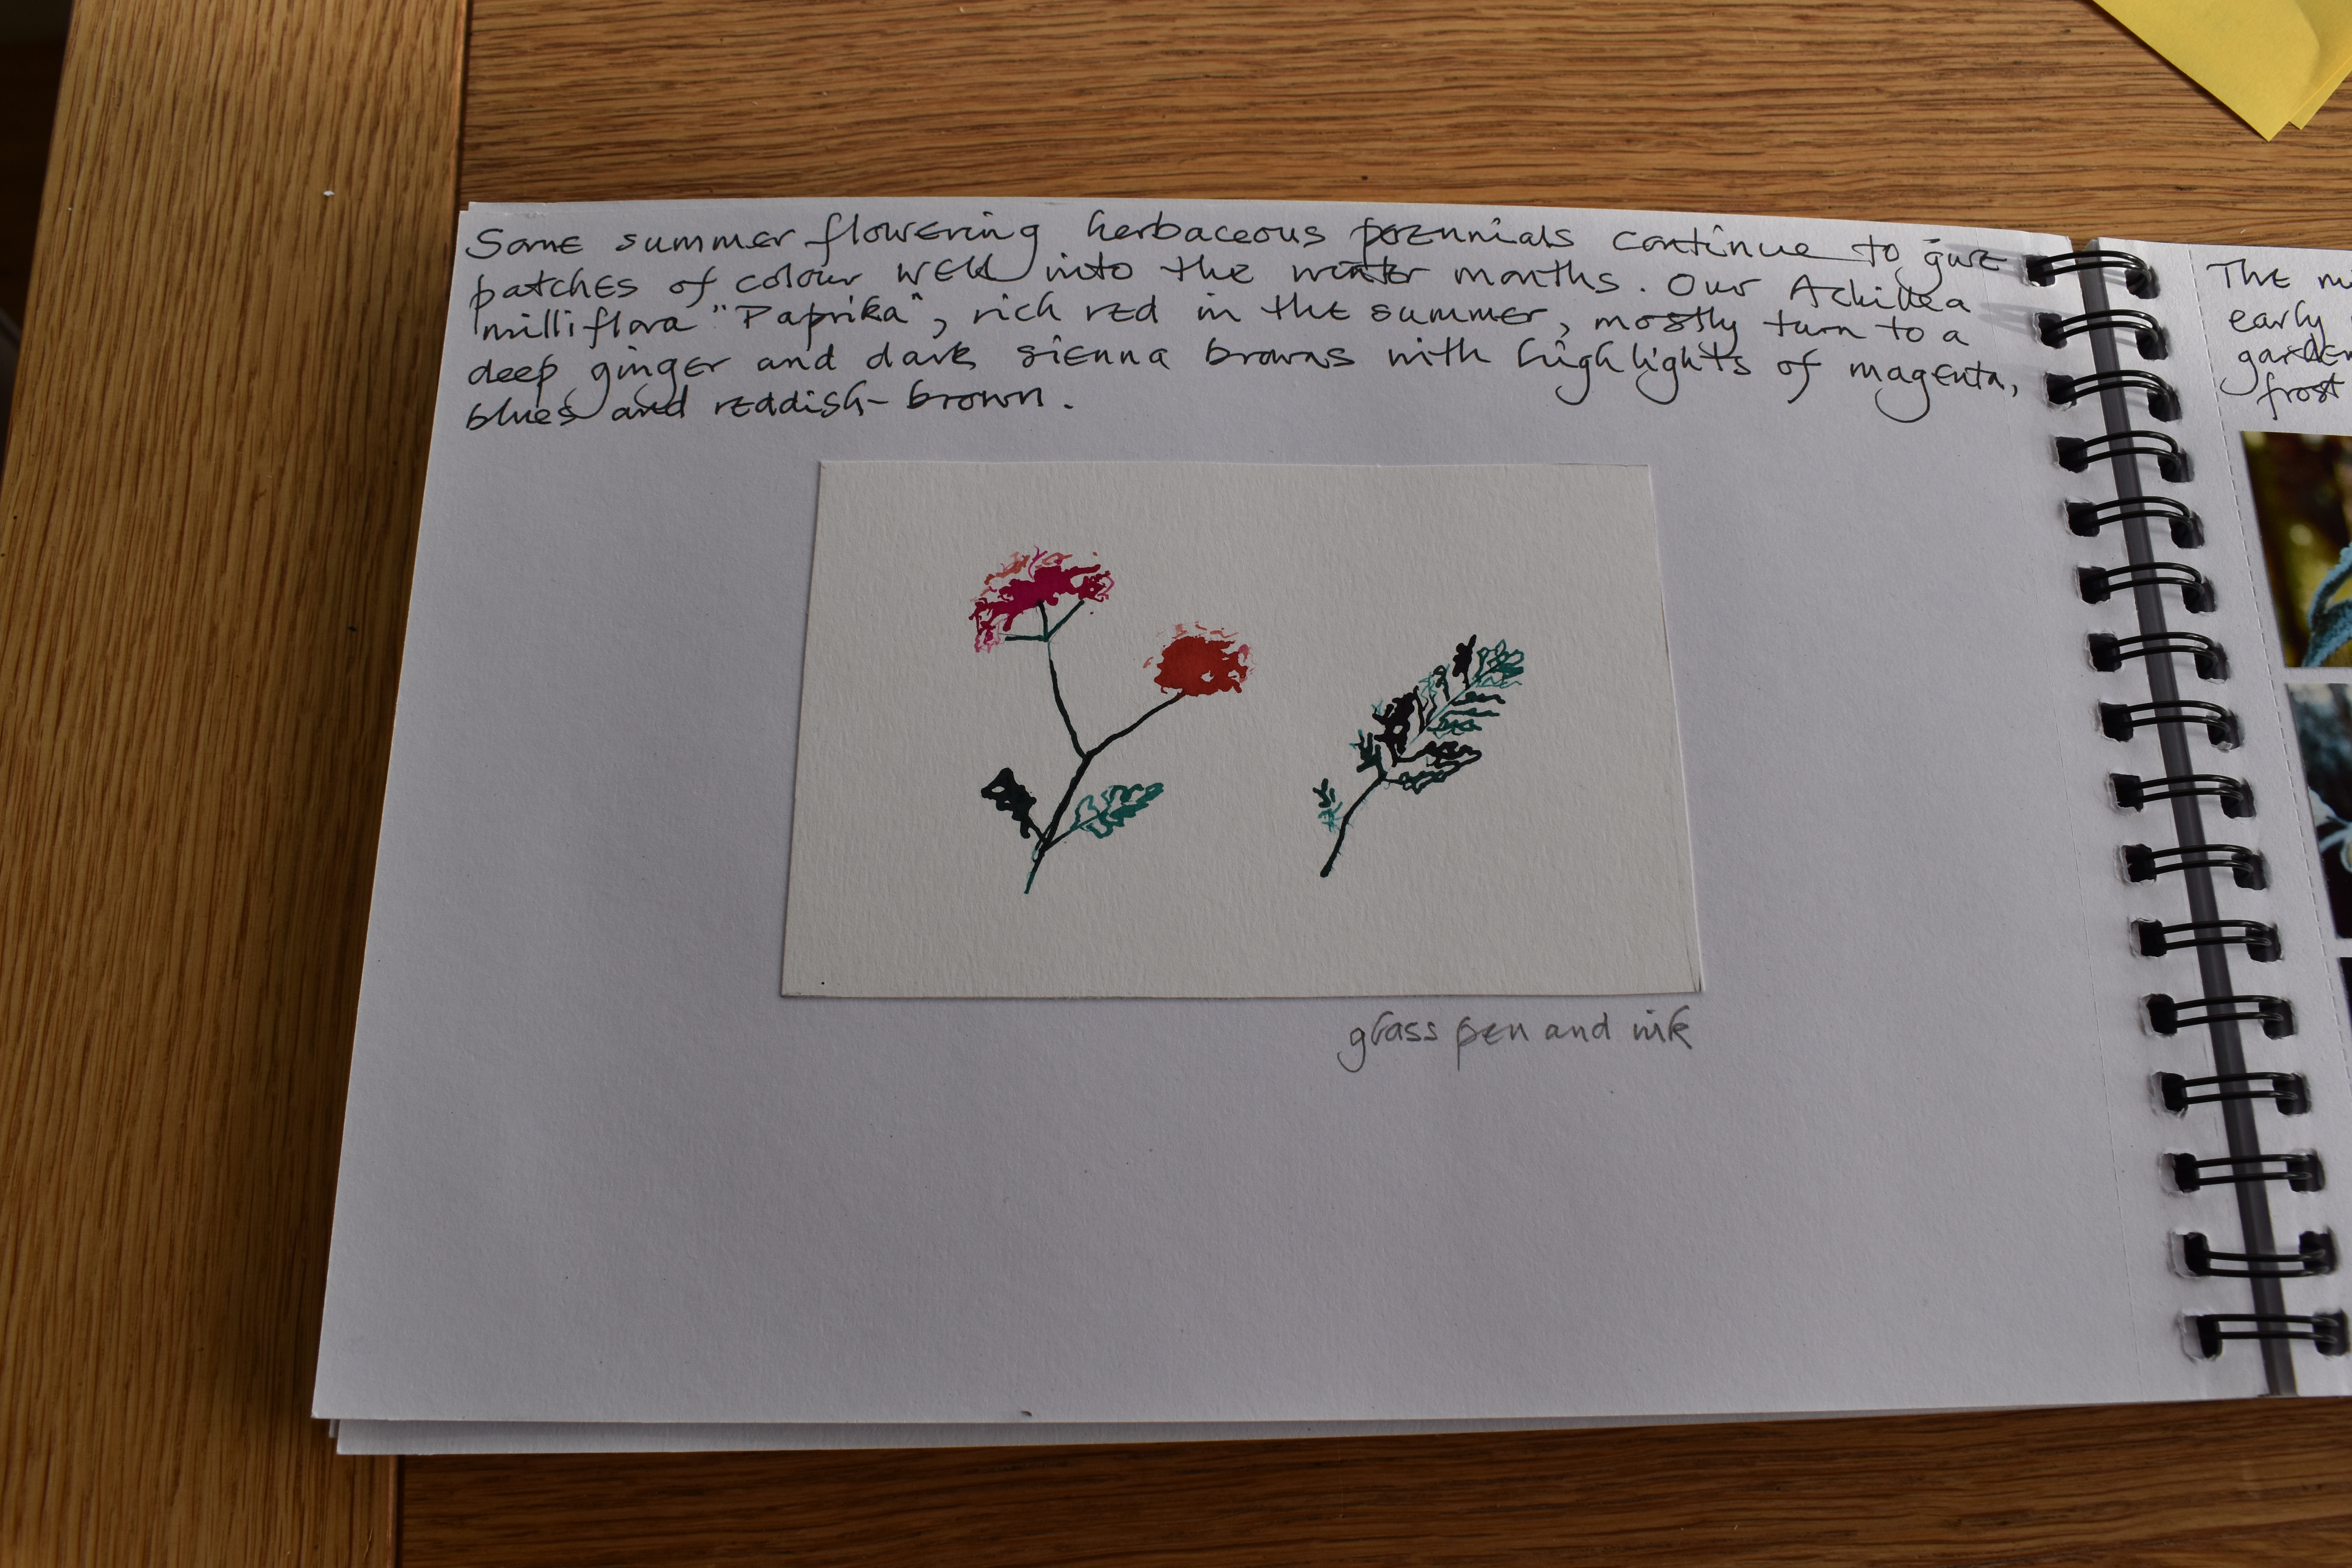 Some summer flowering herbaceous perennials continue to give
patches of colour well into the winter months. Our Achillea
milliflora "Paprika", rich red in the summer, mostly turn to a
deep ginger and dark sienna browns with highlights of magenta,
blues and reddish-brown.
glass pen and ink
The
early
garden
frost